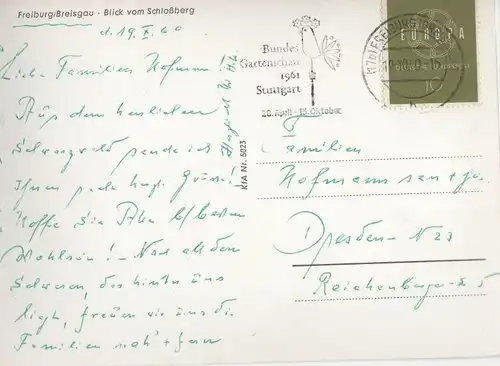 Freiburg/Breisgau - Blick vom Schloßberg
d. 19. X. 60
Liebe Familien Hofmann!
Aus dem herrlichen
Schwarzwald sende ich
Ihnen sehr herzl. Grüße!
Hoffe Sie Alle b/besten
Wohlsein! - Nach all dem
Schweren, das hinter uns
liegt, freuen wir uns die
Familien nah + fern
KfA Nr. 5023
Bundes
Gartenschau
1961
Stuttgart
28. April - 15. Oktober
EUROPA
10
Familien
Hofmann sen + jr.
Dresden - N 23
Reichenberger 5